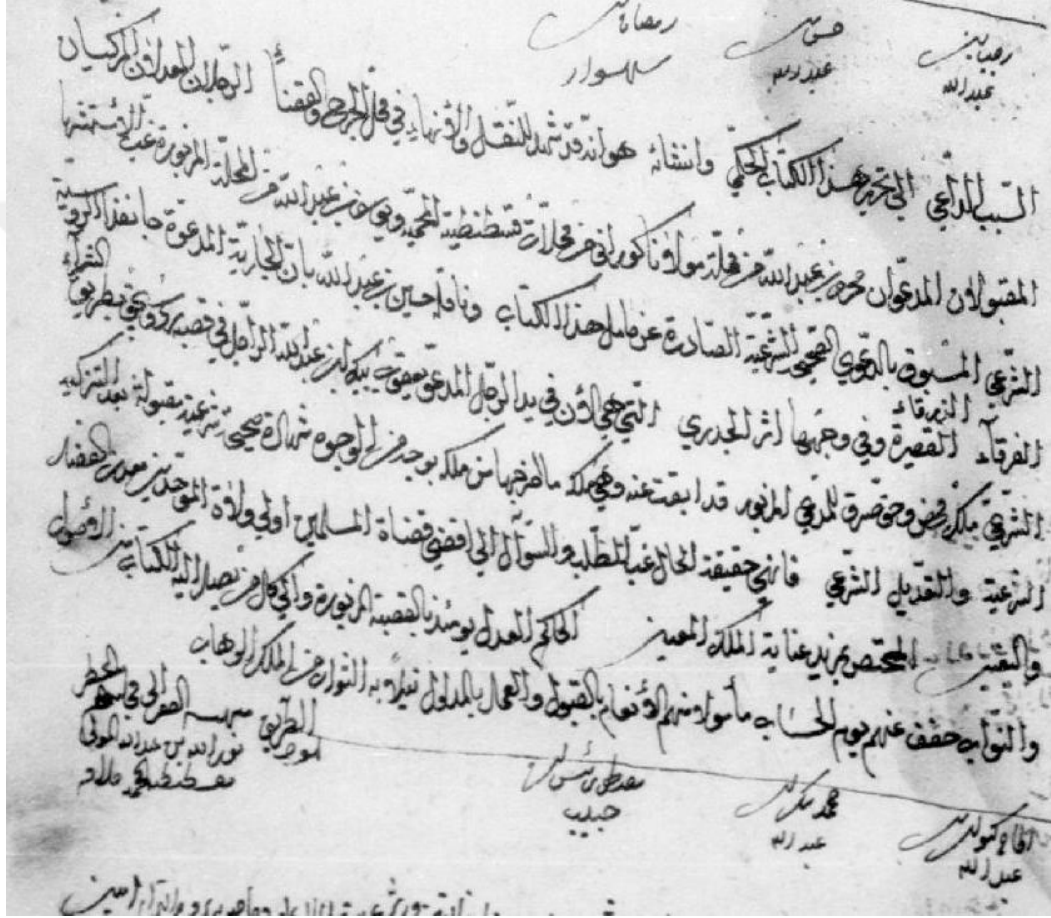 رجب بن عبد الله حسن بن عبد الله رمضان بن سهسوار
السبب الداعي الى تحرير هذا الكتاب الحكمي وانشائه هو انه قد شهد للنقل والانهاء في محل الجرح والقضاء الرجلان المعدلان المزكيان
المقبولان المدعوان محمود بن عبد الله من محلة مولانا كوراني من محلات قسطنطينية المحمية وفي بن عبد الله من المحلة المزبورة غب
الشرعي المسبوق بالدعوى الصحيحة الشرعية الصادرة عن حامل هذا الكتاب وناقله حسين بن عبد الله بان الجارية المدعوة الروسية
الفرقاء الزرقاء القصيرة وفي وجهها اثر الجدري التي هي الآن في يد الرجل المدعو يعقوب بن عبد الله الراجل في قصبة بطريق الشراء
الشرعي ملك محض وحق صرف للمدعي المزبور قد ابقت عنه وهي ملكه ما اخرجها من ملكه بوجه من الوجوه شهادة صحيحة شرعية مقبولة بعد التزكية
الشرعية والتعديل الشرعي فانهي حقيقة الحال غب الطلب والسؤال الى اقضى قضاة المسلمين اولى ولاة الموحدين معدن الفضل
واليقين المختص بمزيد عناية الملك المعين الحاكم العدل يومئذ بالقصبة المزبورة والى كل من يصل اليه الكتاب من
والنواب خفف عنهم يوم الحساب مأمولا منهم الانعام بالقبول والعمل بالمدلول نيلا به الثواب من الملك الوهاب
الحاج بن عبد الله محمد بن عبد الله مصطفى بن حبيب